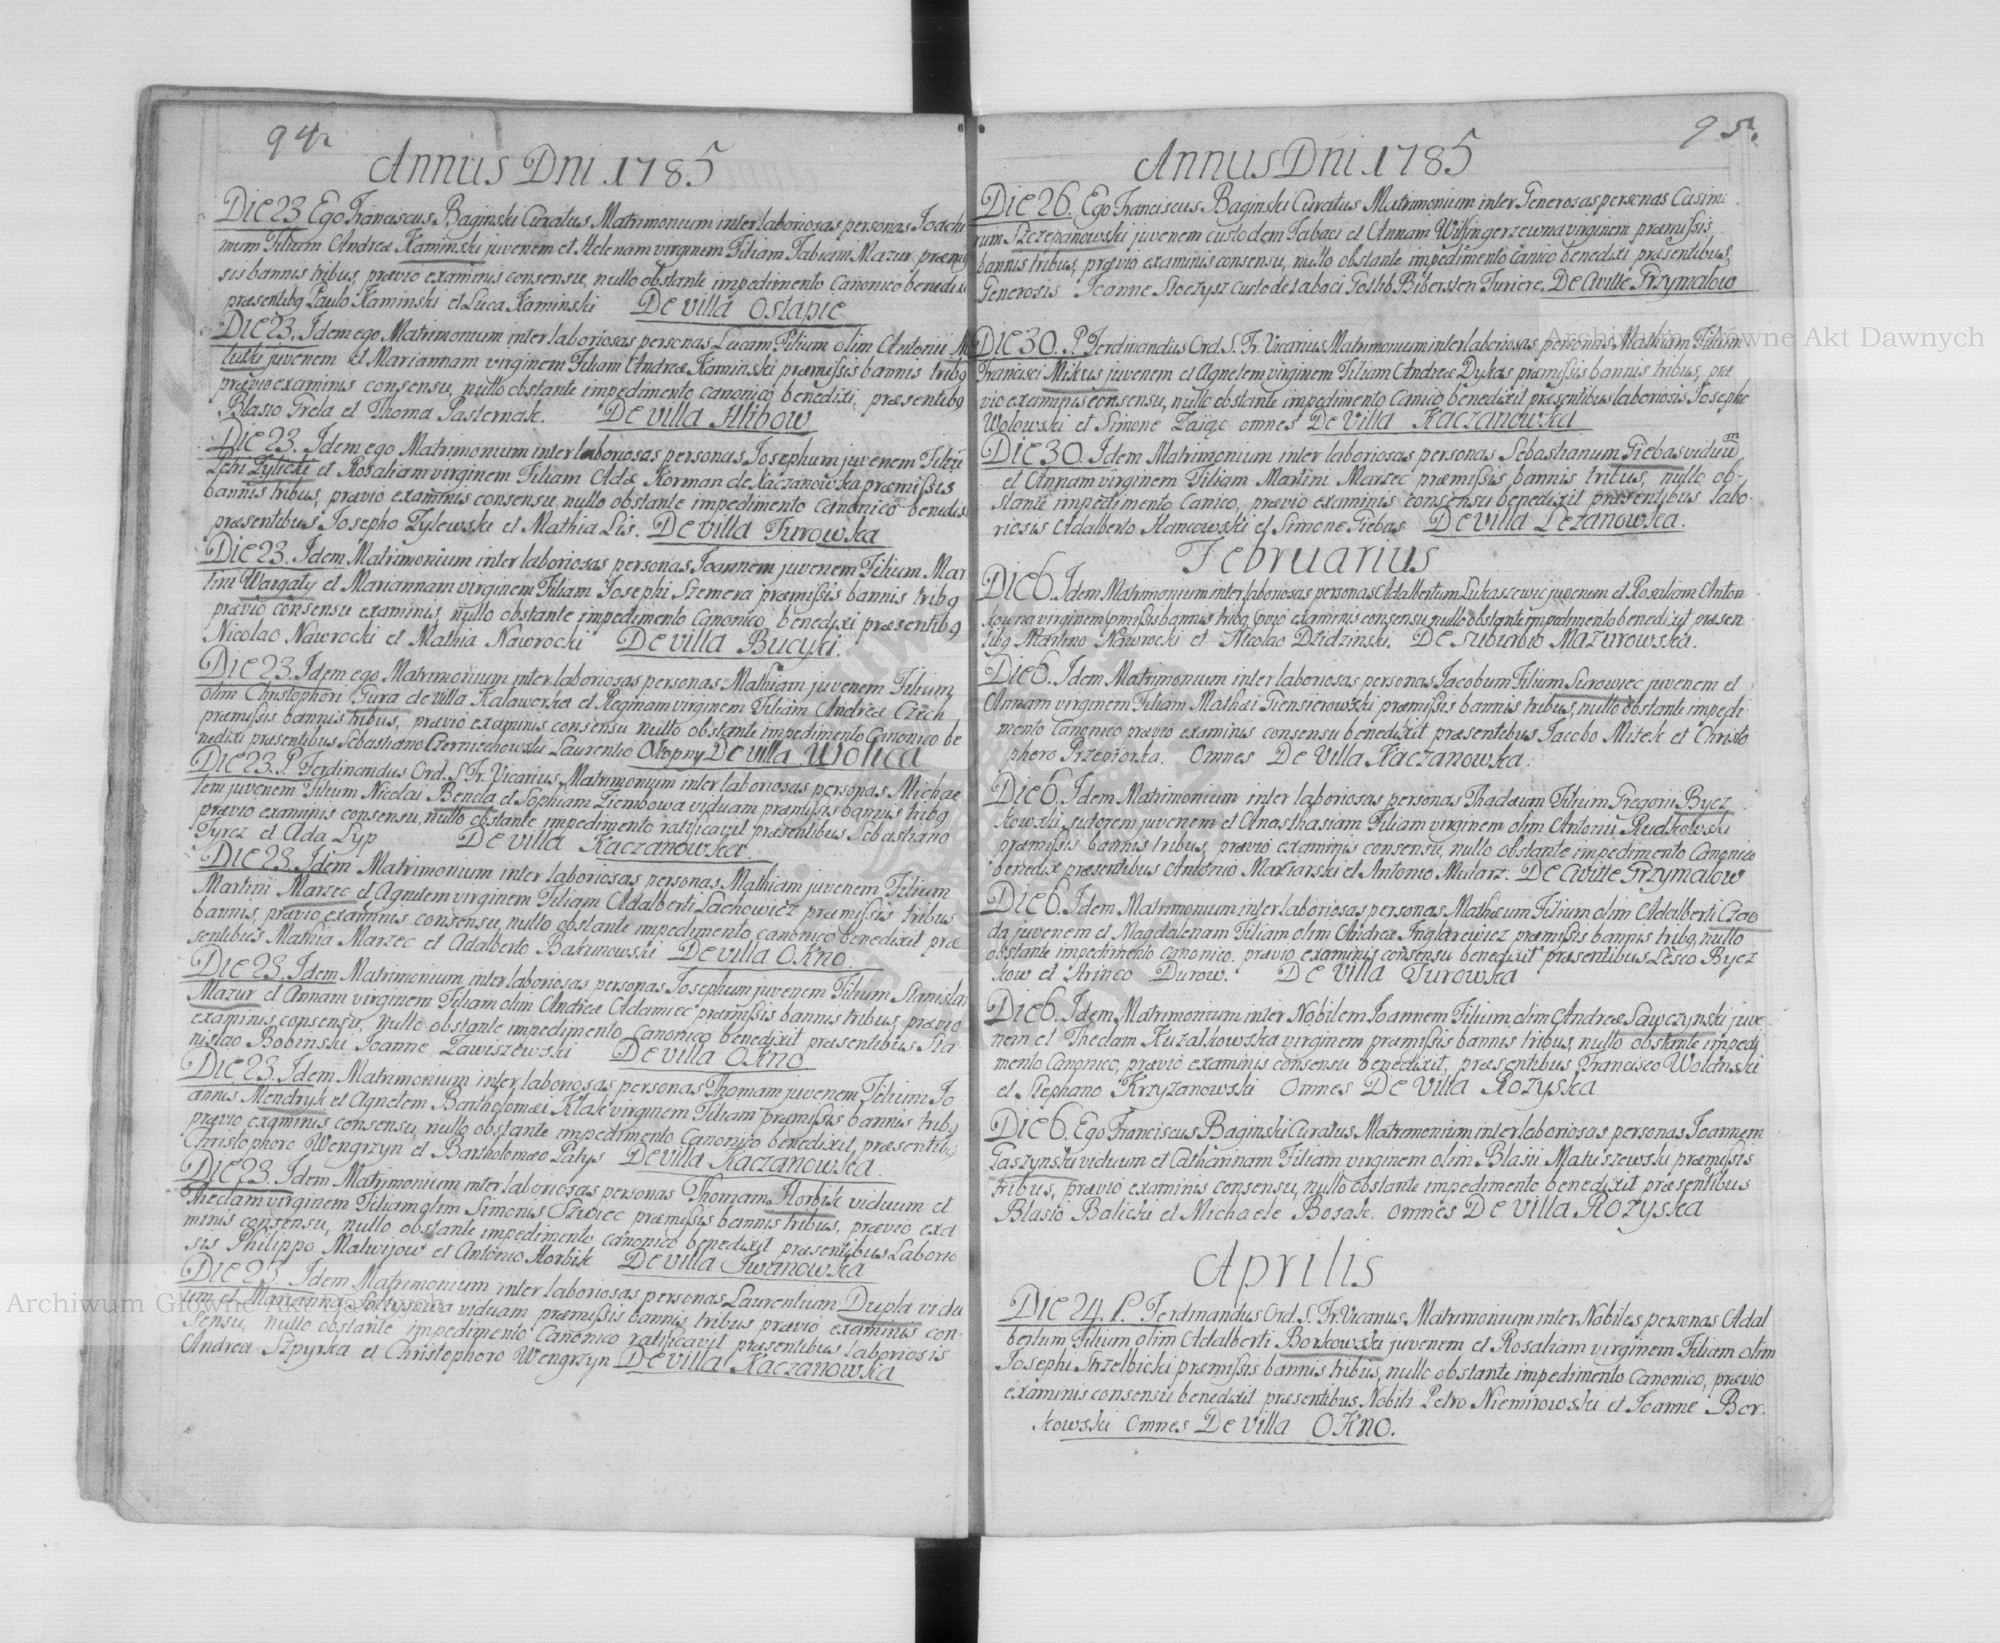 94
Annus Dni 1785
Die 23 Ego Franciscus Baginski Curatus Matrimonium inter laboriosas personas Joachi
mum Filium Andreæ Kaminski juvenem et Helenam virginem Filiam Fabiani Mazur præmis
sis bannis tribus, prævio examinis consensu, nullo obstante impedimento Canonico benedixi
præsentibq Paulo Kaminski et Luca Kaminski De villa Ostapie
Die 23. Idem ego Matrimonium inter laboriosas personas Lucam Filium olim Antonii
juvenem et Mariannam virginem Filiam Andreæ Kaminski præmissis bannis tribq
prævio examinis consensu, nullo obstante impedimento canonico benedixi, præsentibq
Blasio Grela et Thoma Pasternak. De villa Hlibow
Die 23. Idem ego Matrimonium inter laboriosas personas Josephum juvenem Filiū
Zylicki et Rosaliam virginem Filiam Adæ Korman de Kaczanowka præmissis
bannis tribus, prævio examinis consensu, nullo obstante impedimento canonico benedixi
præsentibus Josepho Zylewski et Mathia Lis. De villa Turowka
Die 23. Idem Matrimonium inter laboriosas personas Joannem juvenem Filium Mar
tini Wargaty et Mariannam virginem Filiam Josephi Szemera præmissis bannis tribq
prævio consensu examinis, nullo obstante impedimento Canonico benedixi præsentibq
Nicolao Nawrocki et Mathia Nawrocki De villa Bucyki.
Die 23. Idem ego Matrimonium inter laboriosas personas Mathiam juvenem Filium
olim Christophori Gura de villa Kalaworka et Reginam virginem Filiam Andreæ Czech
præmissis bannis tribus, prævio examinis consensu nullo obstante impedimento Canonico be
nedixi præsentibus Sebastiano Czerniechowski Laurentio Okopny De villa Wolica
Die 23. P. Ferdinandus Ord. S. Fr. Vicarius Matrimonium inter laboriosas personas Michae
lem juvenem Filium Nicolai Benela et Sophiam Ziembowa viduam præmissis bannis tribq
prævio examinis consensu, nullo obstante impedimento ratificavit præsentibus Sebastiano
Tyrcz et Ada Lyp De villa Kaczanowka.
Die 23. Idem Matrimonium inter laboriosas personas Mathiam juvenem Filium
Martini Marzec et Agnetem virginem Filiam Adalberti Lachowicz præmissis tribus
bannis, prævio examinis consensu, nullo obstante impedimento canonico benedixit præ
sentibus Mathia Marzec et Adalberto Bakunowski De villa Okno.
Die 23. Idem Matrimonium inter laboriosas personas Josephum juvenem Filium Stanislai
Mazur et Annam virginem Filiam olim Andreæ Adamiec præmissis bannis tribus, prævio
examinis consensu, nullo obstante impedimento Canonico benedixit præsentibus Sta
nislao Bobinski Joanne Zawiszewski De villa Okno
Die 23. Idem Matrimonium inter laboriosas personas Thomam juvenem Filium Jo
annis Mendryk et Agnetem Bartholomæi Klak virginem Filiam præmissis bannis tribq
prævio examinis consensu, nullo obstante impedimento Canonico benedixit, præsentibus
Christophoro Wengrzyn et Bartholomæo Patys De villa Kaczanowka.
Die 23. Idem Matrimonium inter laboriosas personas Thomam Horbik viduum et
Theclam virginem Filiam olim Simonis Szwiec præmissis bannis tribus, prævio exa
minis consensu, nullo obstante impedimento canonico benedixit præsentibus Laborio
sis Philippo Matwijow et Antonio Horbik De villa Iwanowka
Die 23. Idem Matrimonium inter laboriosas personas Laurentium Dupla vidu
um et Mariannam viduam præmissis bannis tribus prævio examinis con-
sensu, nullo obstante impedimento Canonico ratificavit præsentibus laboriosis
Andrea Szpyrka et Christophoro Wengrzyn De villa Kaczanowka
95.
Annus Dni 1785
Die 26. Ego Franciscus Baginski Curatus Matrimonium inter Generosas personas Casimi
rum Szczepanowski juvenem custodem Tabaci et Annam Wilfingerzewna virginem præmissis
bannis tribus, prævio examinis consensu, nullo obstante impedimento Canico benedixi præsentibus,
Generosis Joanne Stoczysz Custode Tabaci Gotlib Bibersten Furiere. De Civitte Grzymalow
Die 30. P. Ferdinandus Ord. S. Fr. Vicarius Matrimonium inter laboriosas personas Mathiam Filium
Francisci Mikus juvenem et Agnetem virginem Filiam Andreæ Dykas præmissis bannis tribus, præ
vio examinis consensu, nullo obstante impedimento Canico benedixit præsentibus laboriosis Josepho
Wolowski et Simone Zaiąc omnes De Villa Kaczanowka
Die 30. Idem Matrimonium inter laboriosas personas Sebastianum Giebas viduum
et Annam virginem Filiam Martini Marzec præmissis bannis tribus, nullo ob-
stante impedimento Canico, prævio examinis consensu benedixit præsentibus labo-
riosis Adalberto Hancowski et Simone Giebas De villa Lezanowka.
Februarius
Die 6. Idem Matrimonium inter laboriosas personas Adalbertum Lukaszewic juvenem et Rosaliam Anton
kowna virginem pmissis bannis tribq pvio examinis consensu nullo obstante impedimento benedixit præsen
tibq Martino Nawrocki et Nicolao Dzidzinski. De suburbio Mazurowka.
Die 6. Idem Matrimonium inter laboriosas personas Jacobum Filium Surowiec juvenem et
Annam virginem Filiam Mathæi Giensierowski præmissis bannis tribus, nullo obstante impedi
mento Canonico prævio examinis consensu benedixit præsentibus Jacobo Mitek et Christo
phoro Przepiorka. Omnes De Villa Kaczanowka.
Die 6. Idem Matrimonium inter laboriosas personas Thadæum Filium Gregorii Bycz
kowski sutorem juvenem et Anasthasiam Filiam virginem olim Antonii Rudkowski
præmissis bannis tribus, prævio examinis consensu, nullo obstante impedimento Canonico
benedix præsentibus Antonio Markarski et Antonio Mularz. De Civitte Grzymalow
Die 6. Idem Matrimonium inter laboriosas personas Mathæum Filium olim Adalberti Czo
da juvenem et Magdalenam Filiam olim Andreæ Inglarewicz præmissis bannis tribq, nullo
obstante impedimento canonico prævio examinis consensu benedixit præsentibus Lesco Bycz
kow et Hrinco Durow. De villa Turowka
Die 6. Idem Matrimonium inter Nobilem Joannem Filium olim Andreæ Sawczynski juve
nem et Theclam Kuzalkowska virginem præmissis bannis tribus, nullo obstante impedi
mento Canonico, prævio examinis consensu benedixit, præsentibus Francisco Wolanski
et Stephano Krzyzanowski Omnes De Villa Rozyska
Die 6. Ego Franciscus Baginski Curatus Matrimonium inter laboriosas personas Joannem
Gaszynski viduum et Catharinam Filiam virginem olim Blasii Matuszewski præmissis
tribus, prævio examinis consensu, nullo obstante impedimento benedixit præsentibus
Blasio Balicki et Michaele Bosak. omnes De villa Rozyska
Aprilis
Die 24. P. Ferdinandus Ord. S. Fr. Vicarius Matrimonium inter Nobiles personas Adal
bertum Filium olim Adalberti Borkowski juvenem et Rosaliam virginem Filiam olim
Josephi Strzelbicki præmissis bannis tribus, nullo obstante impedimento Canonico, prævio
examinis consensu benedixit præsentibus Nobili Petro Niemirowski et Joanne Bor-
kowski omnes De villa Okno.
Archiwum Główne Akt Dawnych
Archiwum Główne Akt Dawnych